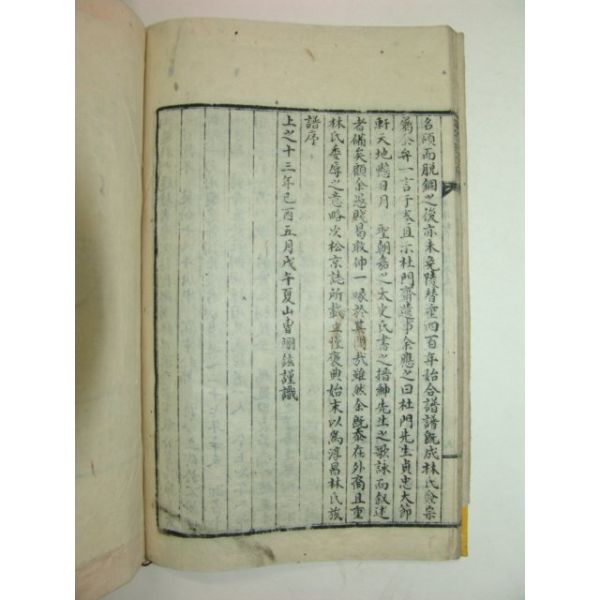 名碩而脫錮之後亦未免陵替垂四百年始合譜譜旣成林氏僉宗
弁一言于卷且示杜門齋遺事余應之曰杜門先生貞忠大節
軒天地懸日月 聖朝嘉之太史氏書之搢紳先生之歌詠而叙述
者備矣顧余愚賤曷敢伸一喙於其間哉雖然余旣忝在外裔且重
林氏委辱之意略次松京誌所載立慬褒典始末以爲淳昌林氏族
譜序
上之十三年己酉五月戊午夏山曺謹識